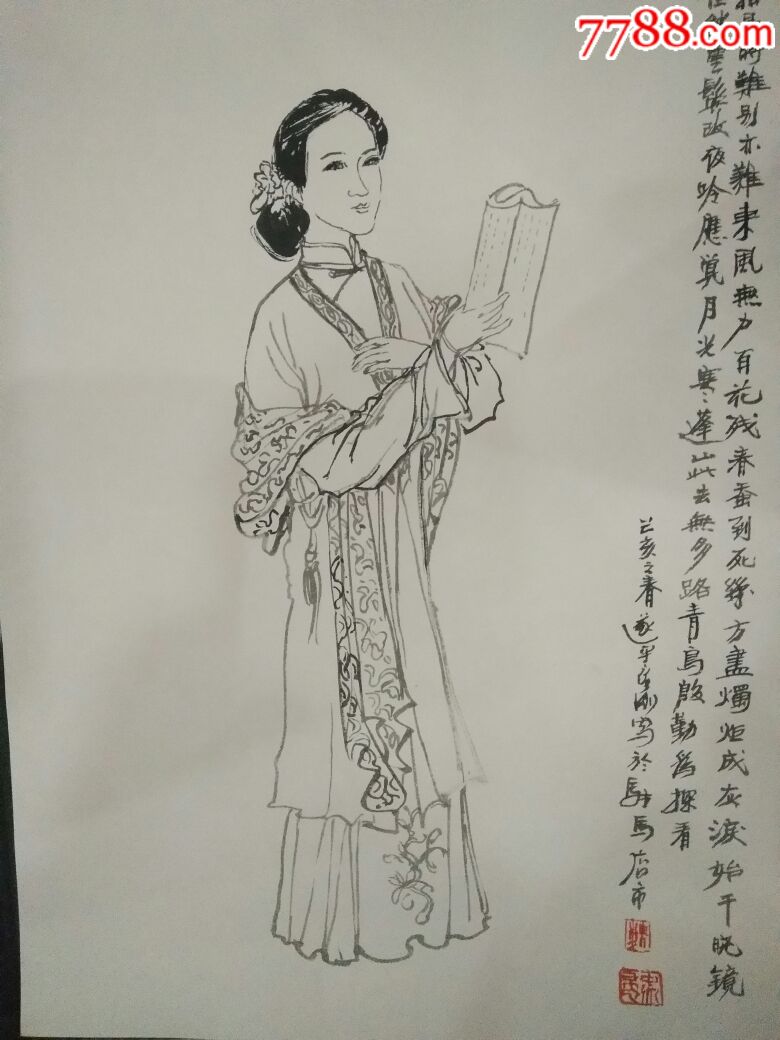 7788.com
相見時難别亦難東風無力百花残春蚕到死絲方盡燭炬成灰淚始干晓鏡
但愁雲鬢改夜吟應覺月光寒蓬山此去無多路青鳥殷勤爲探看
己亥之春遂平剛寫於駐馬店市